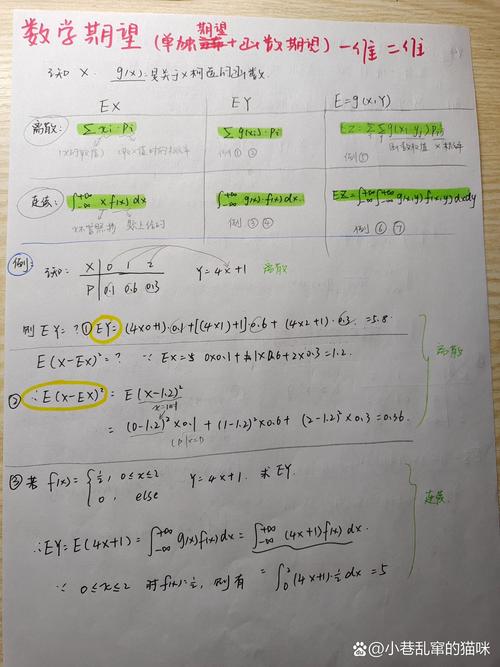 数学期望 (单独期望+函数期望) 一维 二维
已知 X. g(x).是关于X相应的函数.
EX EY E=g(X,Y)
离散: ∑xi·Pi ∑g(xi)·Pi EZ=∑∑g(xi,yj)Pij
例①② 例⑤
连续: ∫_{-∞}^{+∞} x f(x)dx ∫_{-∞}^{+∞} g(x)·f(x)dx. EZ=∫_{-∞}^{+∞}∫_{-∞}^{+∞} g(x,y)f(x,y)dxdy
例③④ 例⑥⑦
例: 已知: X 0 1 2 Y=4x+1 离散
P 0.1 0.6 0.3
则 EY=? ① EY=(4×0+1)·0.1+[(4×1)+1]·0.6+(4×2+1)·0.3=5.8
E(X-EX)²=? ∵ EX= 0×0.1+1×0.6+2×0.3=1.2.
离散
② ∴E(X-EX)² = E(X-1.2)²
= (0-1.2)²×0.1+(1-1.2)²×0.6+(2-1.2)²×0.3=0.36
③ 若 f(x)={½, 0≤x≤2 Y=4X+1. 求EY.
0, else
连续.
∴EY=E(4X+1)=∫_{-∞}^{+∞} g(x)f(x)dx=∫_{-∞}^{+∞} (4x+1)f(x)dx.
∵ 0≤x≤2 时f(x)=½, 则有 =∫_0^2(4x+1)·½dx=5
@小巷乱窜的猫咪